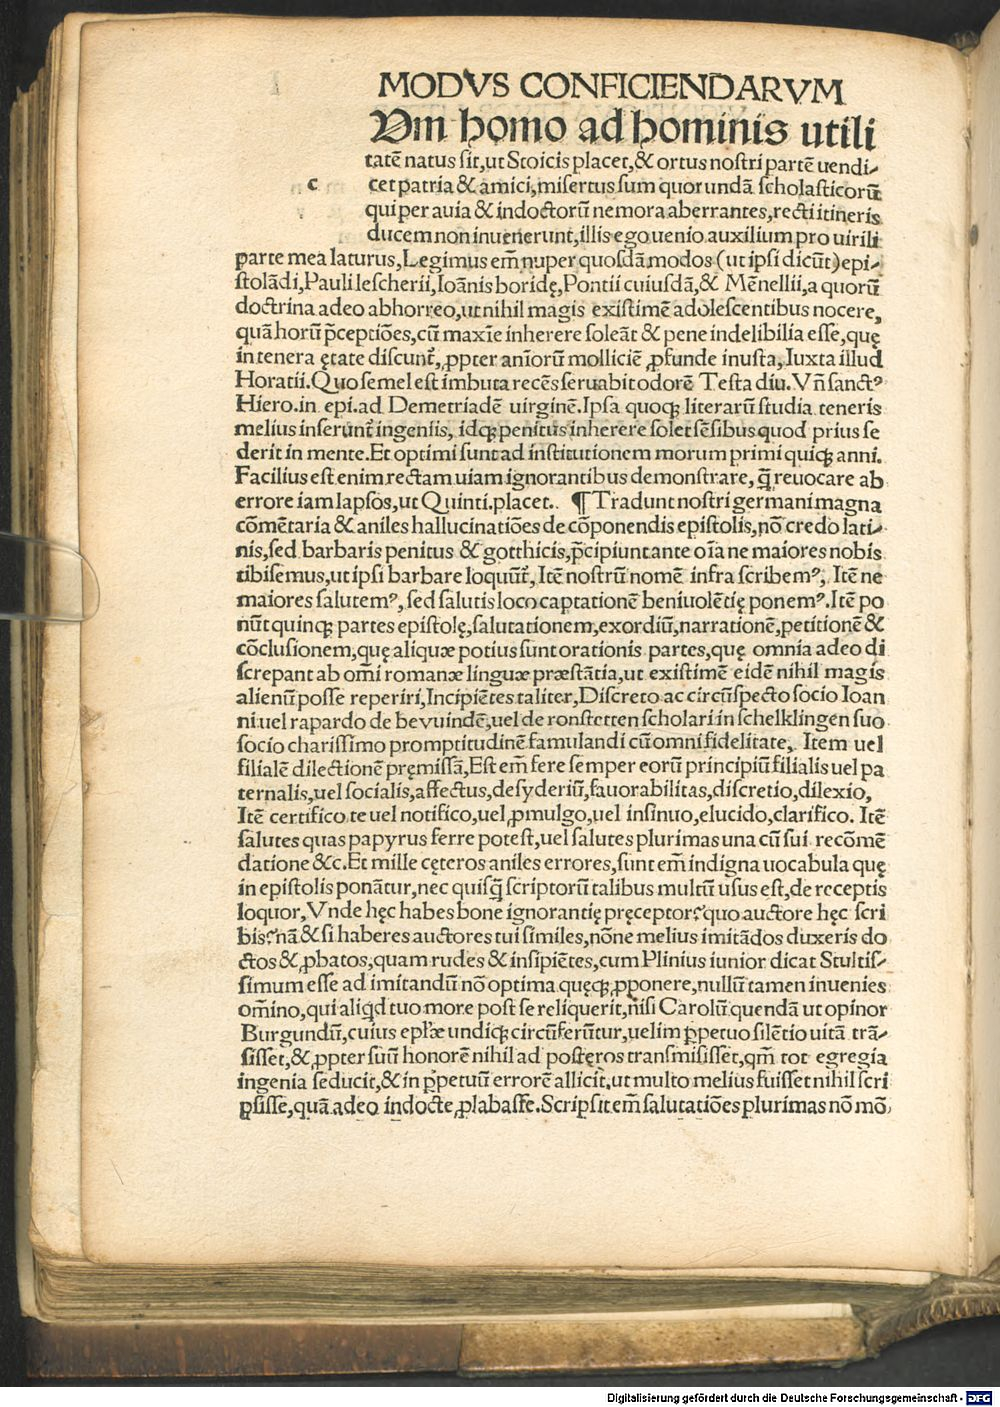 MODVS CONFICIENDARVM
Vm homo ad hominis utili
tatē natus sit,ut Stoicis placet,& ortus nostri partē uendi-
c cet patria & amici,misertus sum quorundā scholasticorū
qui per auia & indoctorū nemora aberrantes,recti itineris
ducem non inuenerunt,illis ego uenio auxilium pro uirili
parte mea laturus,Legimus em̄ nuper quosdā modos (ut ipsi dicūt)epi-
stolādi,Pauli lescherii,Ioānis boridę,Pontii cuiusdā,& Mēnellii,a quorū
doctrina adeo abhorreo,ut nihil magis existimē adolescentibus nocere,
quā horū p̄ceptiōes,cū maxīe inherere soleāt & pene indelibilia esse,quę
in tenera ętate discunt᷑,ꝓpter anīorū molliciē ꝓfunde inusta,Iuxta illud
Horatii.Quo semel est imbuta recēs seruabit odorē Testa diu.Vn̄ sanctꝰ
Hiero.in epi.ad Demetriadē uirginē.Ipsa quoqꝫ literarū studia teneris
melius inserunt᷑ ingeniis, idqꝫ penitus inherere solet sēsibus quod prius se
derit in mente.Et optimi sunt ad institutionem morum primi quiqꝫ anni.
Facilius est enim rectam uiam ignorantibus demonstrare, q̄ reuocare ab
errore iam lapsos,ut Quinti.placet. ¶ Tradunt nostri germani magna
cōmētaria & aniles hallucinatiōes de cōponendis epistolis,nō credo lati-
nis,sed barbaris penitus & gotthicis,p̄cipiunt ante oīa ne maiores nobis
tibisemus,ut ipsi barbare loquūt᷑, Itē nostrū nomē infra scribemꝰ, Itē ne
maiores salutemꝰ, sed salutis loco captationē beniuolētię ponemꝰ.Itē po
nūt quinqꝫ partes epistolę,salutationem,exordiū,narrationē,petitionē &
cōclusionem,quę aliquæ potius sunt orationis partes,quę omnia adeo di
screpant ab om̄i romanæ linguæ præstātia,ut existimē eidē nihil magis
alienū posse reperiri,Incipiētes taliter,Discreto ac circūspecto socio Ioan
ni uel rapardo de bevuindē,uel de ronstetten scholari in schelklingen suo
socio charissimo promptitudinē famulandi cū omni fidelitate, Item uel
filialē dilectionē pręmissā,Est em̄ fere semper eorū principiū filialis uel pa
ternalis,uel socialis,affectus,desyderiū,fauorabilitas,discretio,dilexio,
Itē certifico te uel notifico,uel ꝓmulgo,uel insinuo,elucido,clarifico. Itē
salutes quas papyrus ferre potest,uel salutes plurimas una cū sui recōmē
datione &c.Et mille cęteros aniles errores,sunt em̄ indigna uocabula quę
in epistolis ponātur,nec quisq̄ scriptorū talibus multū usus est,de receptis
loquor,Vnde hęc habes bone ignorantię pręceptor?quo auctore hęc scri
bis?nā & si haberes auctores tui similes,nōne melius imitādos duxeris do
ctos & ꝓbatos,quam rudes & insipiētes,cum Plinius iunior dicat Stultis-
simum esse ad imitandū nō optima quęqꝫ ꝓponere,nullū tamen inuenies
om̄ino,qui aliqd tuo more post se reliquerit,nisi Carolū quendā ut opinor
Burgundū,cuius epl̄æ undiqꝫ circūferūtur,uelim p̄petuo silētio uitā trā-
sisset,& ꝓpter suū honorē nihil ad posteros transmisisset,qm̄ tot egregia
ingenia seducit,& in p̄petuū errorē allicit,ut multo melius fuisset nihil scri
psisse,quā adeo indocte ꝓlabasse.Scripsit em̄ salutatiōes plurimas nō mō
Digitalisierung gefördert durch die Deutsche Forschungsgemeinschaft - DFG